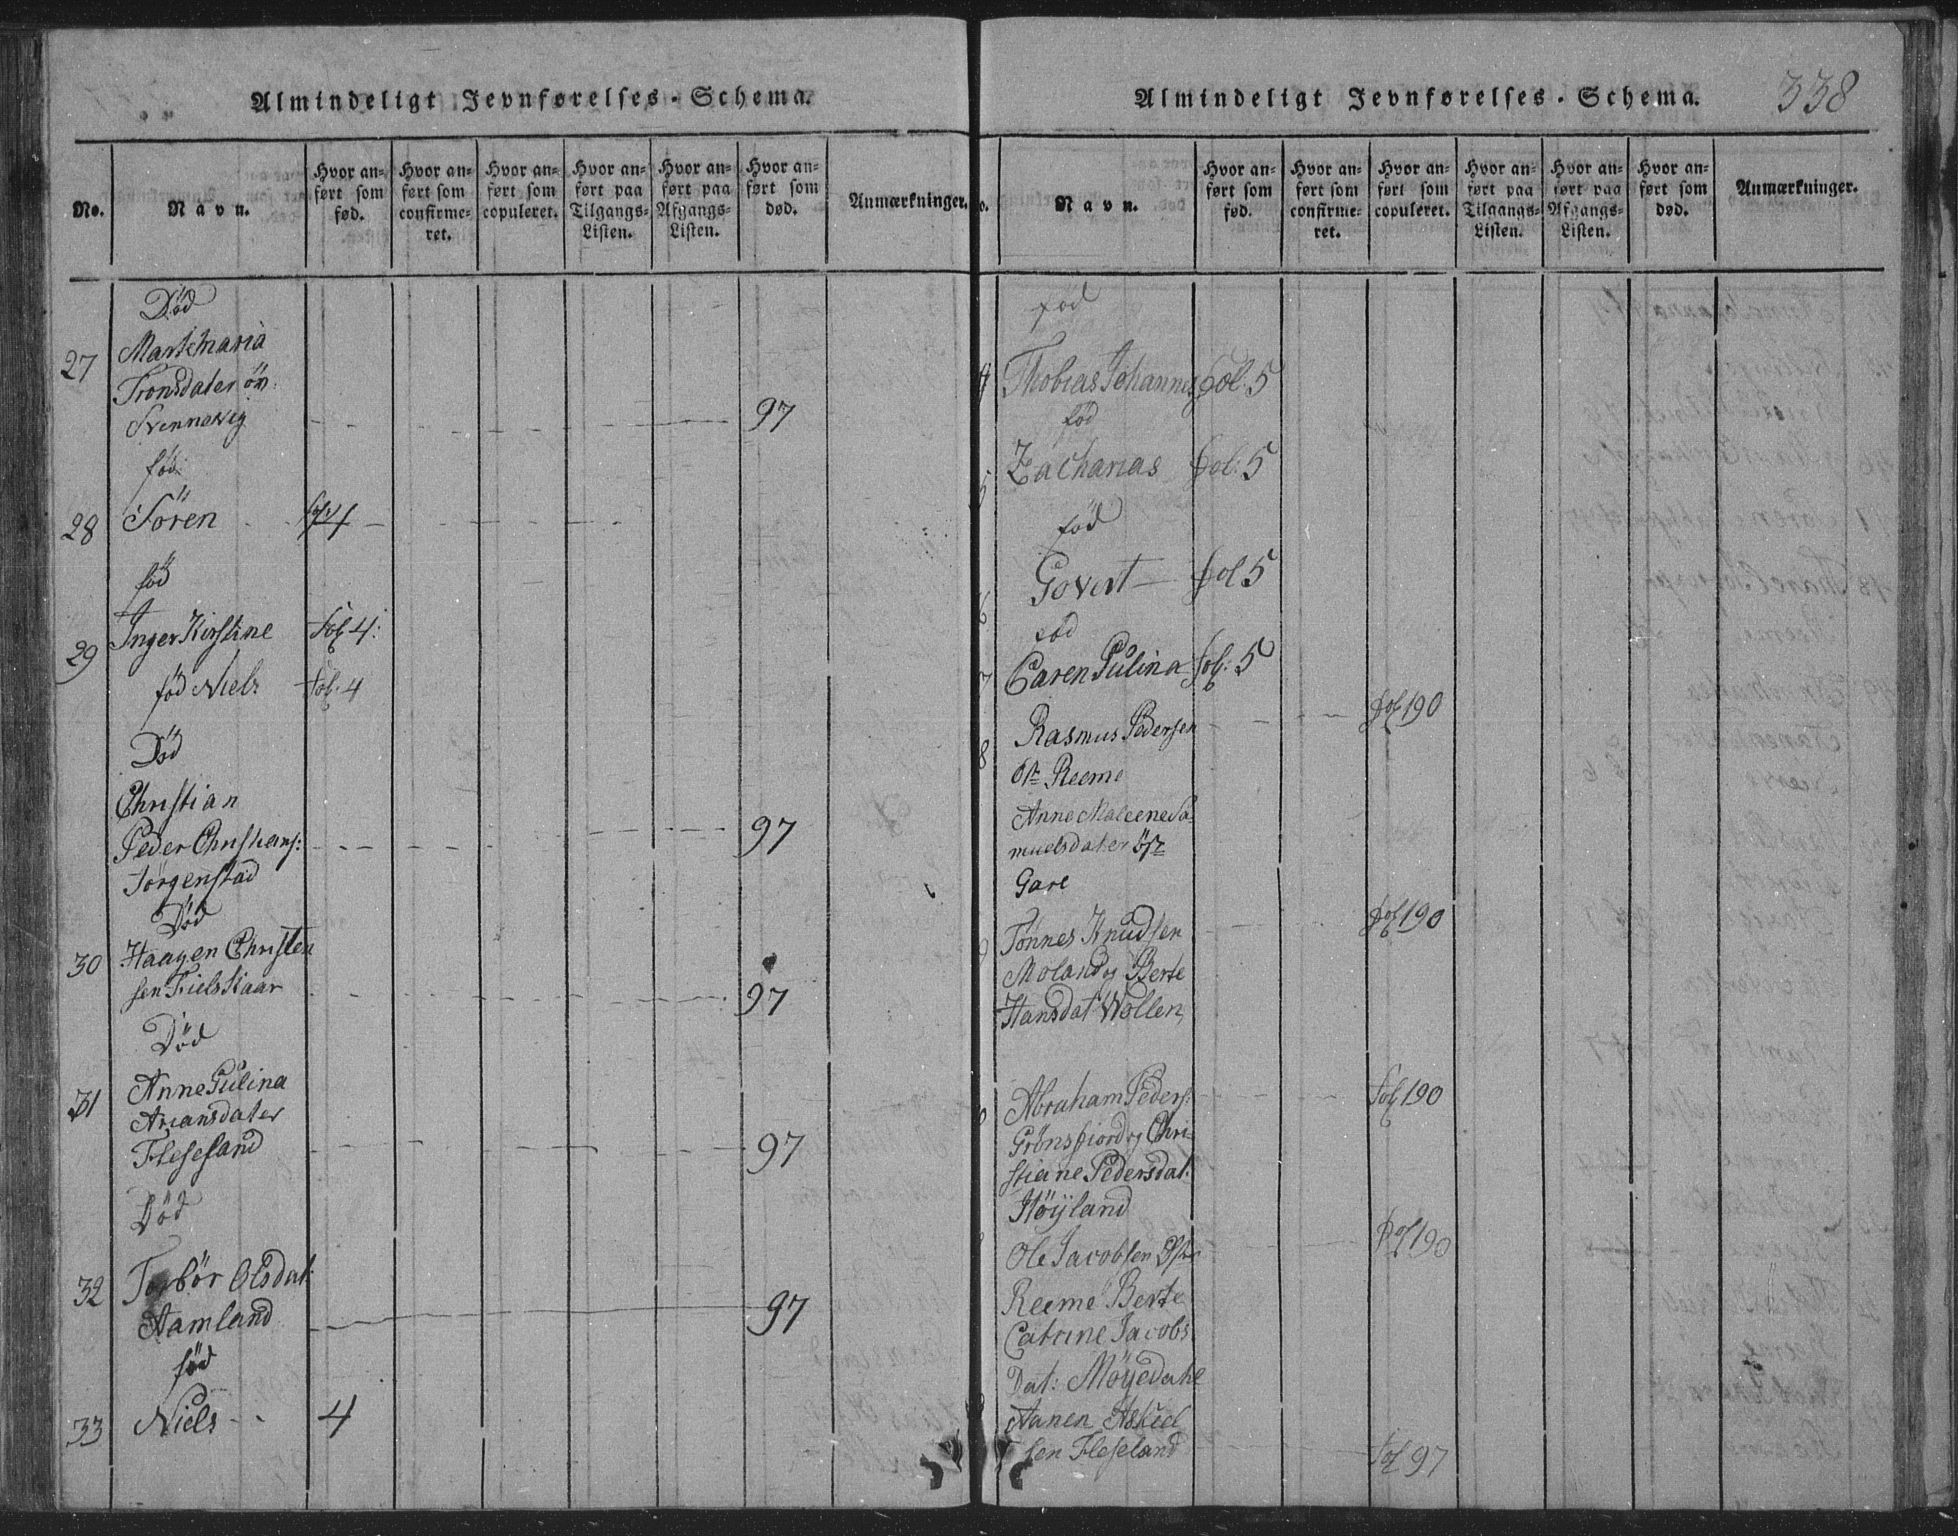 Almindeligt Jevnførelses-Schema.
No.
Navn.
Hvor anført som fød.
Hvor anført som confirmeret.
Hvor anført som copuleret.
Hvor anført paa Tilgangs-Listen.
Hvor anført paa Afgangs-Listen.
Hvor anført som død.
Anmærkninger.
Död
27 Martemaria
Tronsdater
Svennevig 97
föd
28 Sören
föd
29 Inger Kirstine Fol 4:
föd Niels Fol. 4
Död
Christian
Peder Christians: 97
Jörgenstad
Död
30 Haagen Christen
sen Fielskaar 97
Död
31 Anne Gŭlina
Ariansdater
Fleseland 97
Död
32 Torbör Olsdat:
Aamland 97
föd
33 Niels 4
Almindeligt Jevnførelses-Schema. 338
Navn.
Hvor anført som fød.
Hvor anført som confirmeret.
Hvor anført som copuleret.
Hvor anført paa Tilgangs-Listen.
Hvor anført paa Afgangs-Listen.
Hvor anført som død.
Anmærkninger.
föd
4 Thobias Johannes Fol. 5
föd
5 Zacharias Fol. 5
föd
6 Govert Fol 5
föd
7 Caren Gŭlina Fol. 5
8 Rasmus Pedersen Fol 190
Reeme
Anne Maleene Sa
muelsdater
Gare
9 Tönnes Knudsen Fol 190
Moland og Berte
Hansdat Wollen
0 Abraham Peders: Fol 190
Grönsfiord og Chri
stiane Pedersdat:
Höÿland
Ole Jacobsen Fol 190
Reeme Berte
Catrine Jacobs
Dat: Möÿedahl
Aanen Askiel
sen Fleseland Fol 97